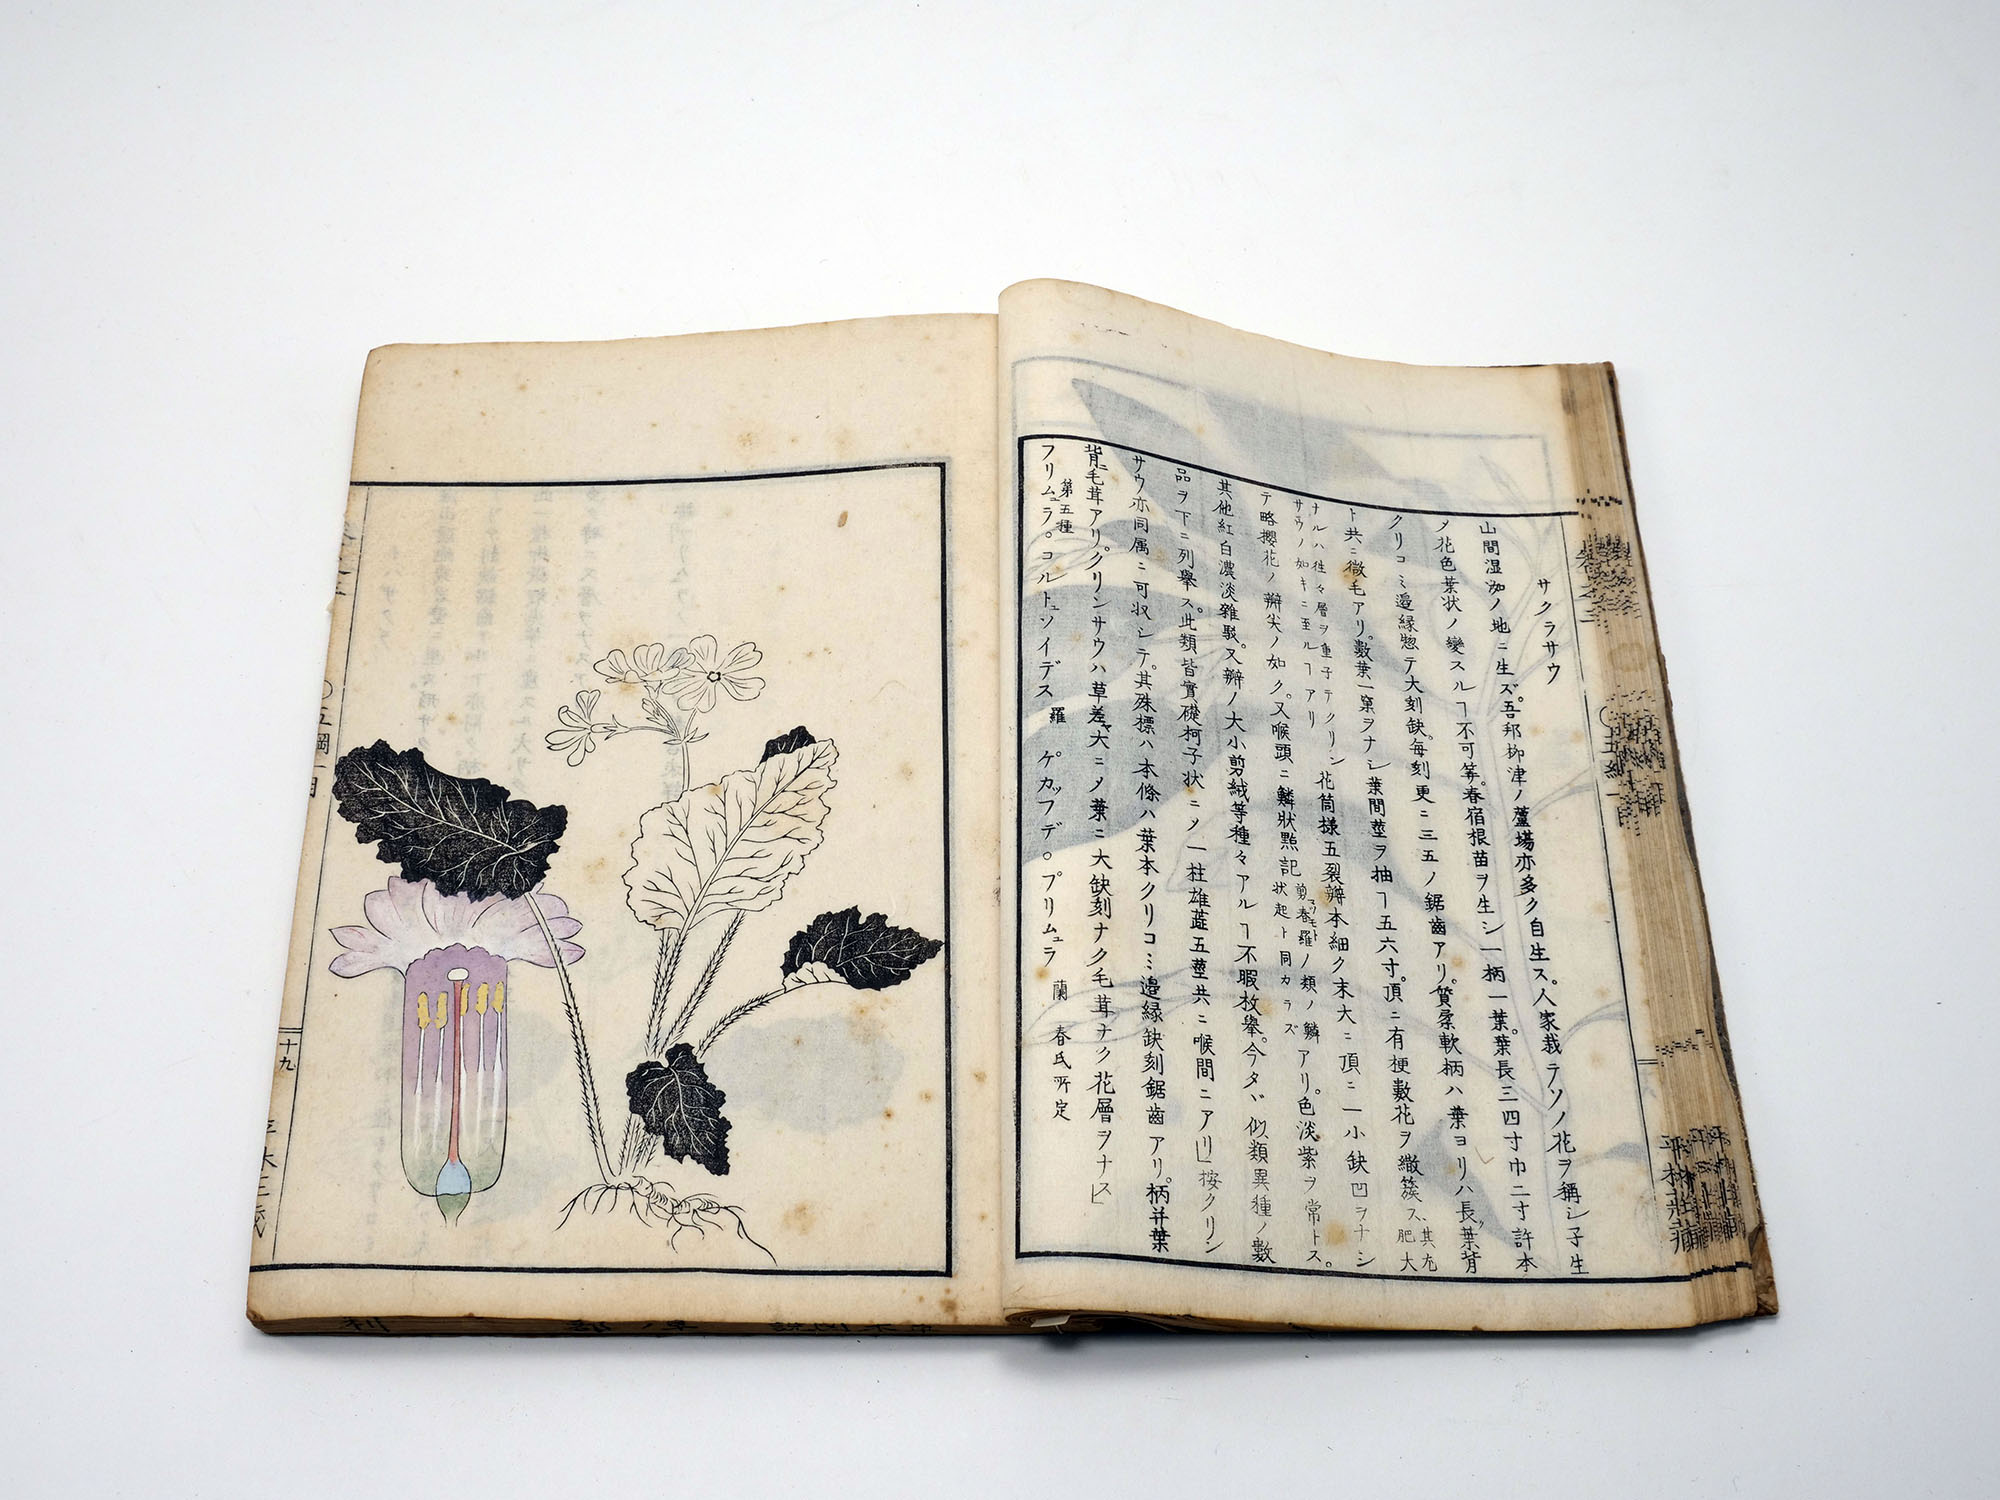 サクラサウ
山間湿泑ノ地ニ生ズ。吾邦柳津ノ蘆場亦多ク自生ス。人家栽ラソノ花ヲ稱シ子生
メ花色葉状ノ變スルヿ不可筭。春宿根苗ヲ生シ一柄一葉。葉長三四寸巾二寸許本
クリコミ邉緣惣テ大刻缺。每刻更ニ三五ノ鋸齒アリ。質柔軟柄ハ葉ヨリハ長ク葉背
ト共ニ微毛アリ。數葉一窠ヲナシ葉間莖ヲ抽ヿ五六寸。頂ニ有梗數花ヲ繖簇ス、其尤肥大
ナルハ徃々層ヲ重子テクリンサウノ如キニ至ルヿアリ 花筒様五裂瓣本細ク末大ニ頂ニ一小缺凹ヲナシ
テ略櫻花ノ瓣尖ノ如ク。又喉頭ニ鱗狀㸃記 剪春羅ノ類ノ鱗状起ト同カラズ アリ。色淡紫ヲ常トス。
其他紅白濃淡雜駁。又瓣ノ大小剪絨等種々アルヿ不暇枚舉。今タヾ似類異種ノ數
品ヲ下ニ列舉ス。此類皆實礎柯子状ニメ一柱雄蕋五莖共ニ喉間ニアリ」按クリン
サウ亦同属ニ可収シテ。其殊標ハ本條ハ葉本クリコミ邉緣缺刻鋸齒アリ。柄并葉
背ニ毛茸アリ。クリンサウハ草差ヤ大ニメ葉ニ大缺刻ナク毛茸ナク花層ヲナス」
第五種
フリムュラ。コルトュソイデス 羅 ケカッフデ。プリムュラ 蘭 春氏所定
卷之三
〇五綱一
平林莊藏
〇五綱一目
十九